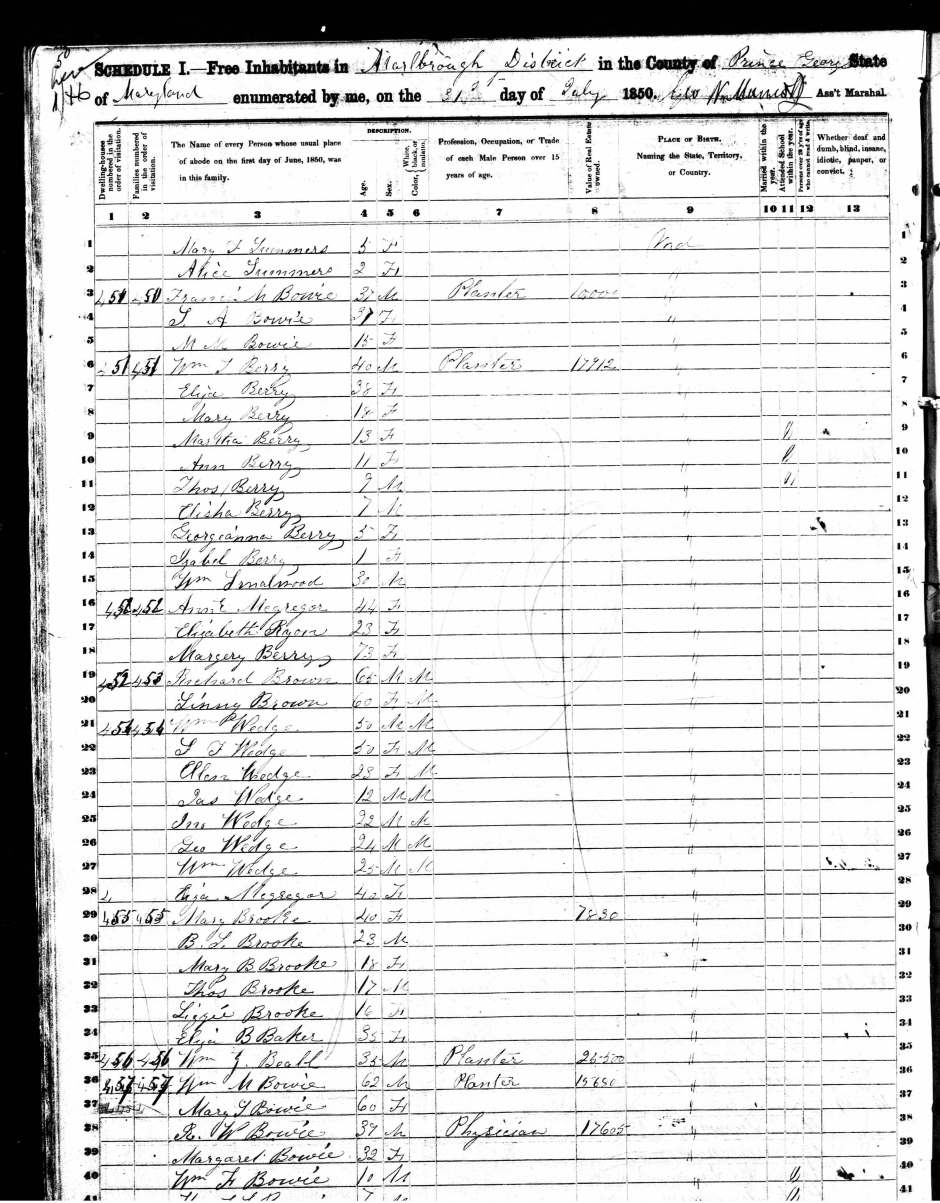 SCHEDULE I.—Free Inhabitants in Marlbrough District in the County of Prince Georg State
of Maryland enumerated by me, on the 31st day of July 1850. Ass't Marshal.
DESCRIPTION.
Dwelling-houses numbered in the order of visitation.
Families numbered in the order of visitation.
The Name of every Person whose usual place of abode on the first day of June, 1850, was in this family.
Age.
Sex.
Color, White, black, or mulatto.
Profession, Occupation, or Trade of each Male Person over 15 years of age.
Value of Real Estate owned.
PLACE OF BIRTH. Naming the State, Territory, or Country.
Married within the year.
Attended School within the year.
Persons over 20 y'rs of age who cannot read & write.
Whether deaf and dumb, blind, insane, idiotic, pauper, or convict.
1 2 3 4 5 6 7 8 9 10 11 12 13
1 Mary F Summers 5 F Md 1
2 Alice Summers 2 F " 2
3 450 450 Francis M Bowie 37 M Planter 10000 " 3
4 S. A Bowie 37 F " 4
5 M M Bowie 15 F " 5
6 451 451 Wm T Berry 40 M Planter 17912 " 6
7 Eliza Berry 38 F " 7
8 Mary Berry 18 F " 8
9 Martha Berry 13 F " " 9
10 Ann Berry 11 F " " 10
11 Thos Berry 9 M " " 11
12 Elisha Berry 7 M " 12
13 Georgeanna Berry 5 F " 13
14 Isabel Berry 1 F " 14
15 Wm Smalwood 30 M " 15
16 452 452 Ann E Megregor 44 F " 16
17 Elizabeth Ryon 23 F " 17
18 Margery Berry 73 F " 18
19 453 453 Richard Brown 65 M M " 19
20 Linny Brown 60 F M " 20
21 454 454 Wm P Wedge 50 M M " 21
22 S F Wedge 50 F M " 22
23 Ellen Wedge 28 F M " 23
24 Jas Wedge 12 M M " 24
25 Jno Wedge 22 M M " 25
26 Geo Wedge 24 M M " 26
27 Wm Wedge 25 M M " 27
28 Eliza Megregor 40 F " 28
29 455 455 Mary Brooke 40 F 7830 " 29
30 B. L Brooke 23 M " 30
31 Mary B Brooke 18 F " 31
32 Thos Brooke 17 M " 32
33 Lizzie Brooke 16 F " 33
34 Eliza B Baker 35 F " 34
35 456 456 Wm Z. Beall 35 M Planter 25500 " 35
36 457 457 Wm M Bowie 62 M Planter 15650 " 36
37 Mary T Bowie 60 F " 37
38 R. W Bowie 37 M Physician 17605 " 38
39 Margaret Bowie 32 F " 39
40 Wm F Bowie 10 M " " 40
41